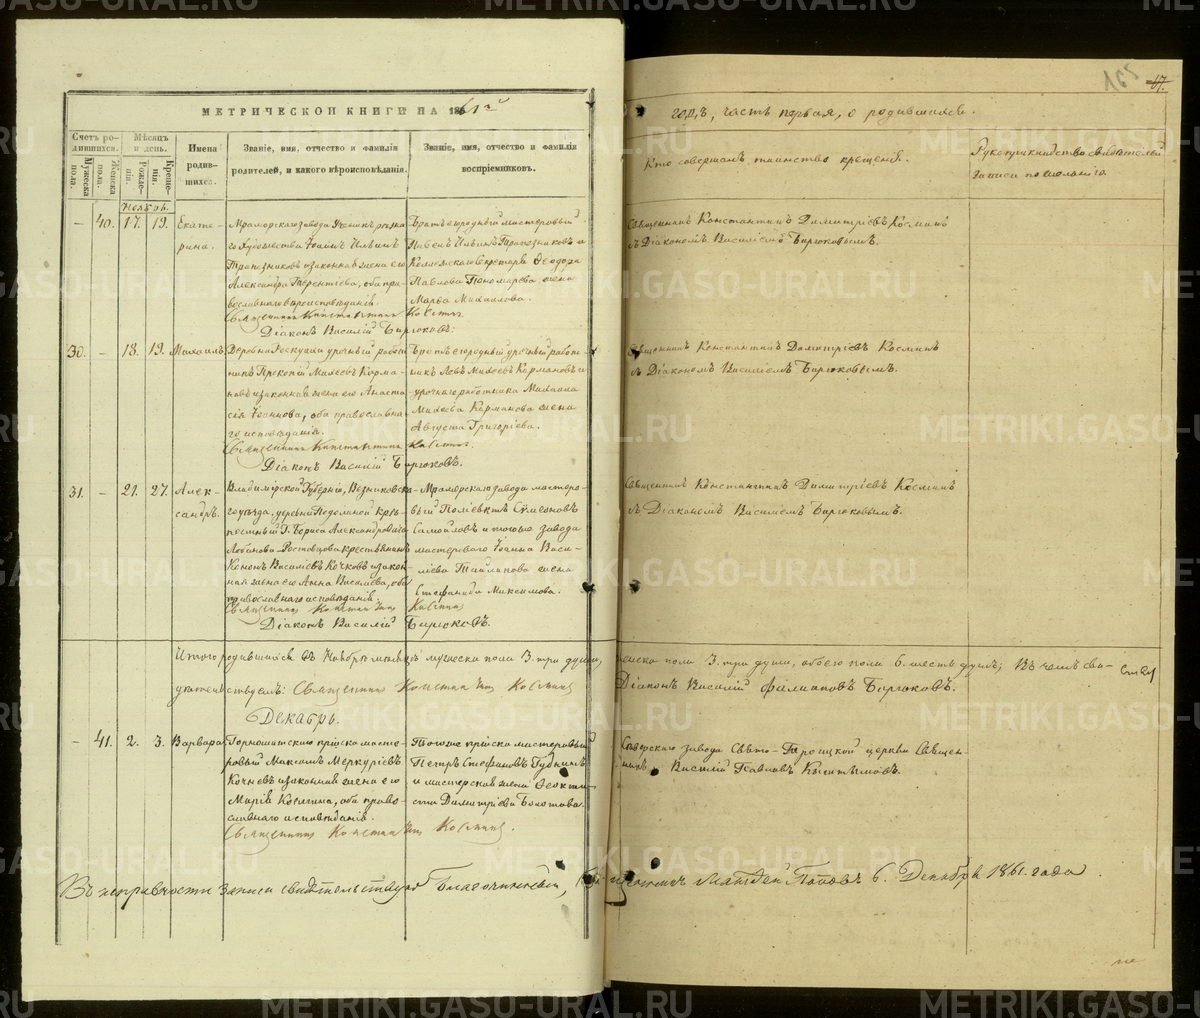 МЕТРИЧЕСКОЙ КНИГИ НА 1861й
Счетъ родившихся.
Мужеска пола.
Женска пола.
Мѣсяцъ и день.
Рожденія.
Крещенія.
Имена родившихся.
Званіе, имя, отчество и фамилія
родителей, и какого вѣроисповѣданія.
Званіе, имя, отчество и фамилія
воспріемниковъ.
Ноябрь.
— 40. 17. 19. Екатерина.
Мраморскаго завода
Іоаннъ Ильинъ
Трапезниковъ и законная жена его
Александра Терентіева, оба православнаго вѣроисповѣданія.
Священникъ Константинъ Косминъ
Діаконъ Василій Бирюковъ.
Братъ его родный мастеровый
Ильинъ Трапезниковъ и
Коллежскаго Секретаря Ѳеодора
Павлова Пономарева жена
Марѳа Михайлова.
30. — 18. 19. Михаилъ.
Деревни Роскуихи урочный работникъ Прокопій Михеевъ Кормановъ и законная жена его Анастасія Іоаннова, оба православнаго исповѣданія.
Священникъ Константинъ Косминъ
Діаконъ Василій Бирюковъ.
Братъ его родный урочный работникъ Левъ Михеевъ Кормановъ и
урочнаго работника Михаила
Михеева Корманова жена
Августа Григоріева.
31. — 21. 27. Александръ.
Владимірской Губерніи, Вязниковскаго уѣзда, деревни
Г. Бориса Александровича
Лобанова Ростовцова крестьянинъ
Кононъ Васильевъ Кочковъ и законная жена его Анна Васильева, оба
православнаго исповѣданія.
Священникъ Константинъ Косминъ
Діаконъ Василій Бирюковъ.
Мраморскаго завода мастеровый Поліевктъ Симеоновъ
Самойловъ и тогоже завода
мастероваго Іоанна Василіева жена
Стефанида Максимова.
Итого родившихся въ Ноябрѣ мѣсяцѣ мужеска пола 3. три души,
женска пола 3. три души, обоего пола 6. шесть душъ; въ чемъ свидѣтельствуемъ: Священникъ Константинъ Косминъ
Діаконъ Василій Филипповъ Бирюковъ.
Декабрь.
— 41. 2. 3. Варвара.
Горнощитскаго пріиска мастеровый Максимъ Меркуріевъ
Кочневъ и законная жена его
Марія Козмина, оба православнаго исповѣданія.
Священникъ Константинъ Косминъ.
Тогоже пріиска мастеровый
Петръ Стефановъ Губкинъ
и мастерская жена Ѳеоктиста Димитріева Болотова.
Въ исправности записи свидѣтельствую Благочинный,
годъ, часть первая, о родившихся.
165
67.
Кто совершалъ таинство крещенія.
Рукоприкладство свидѣтелей
записи по желанію.
Священникъ Константинъ Димитріевъ Косминъ
съ Діакономъ Василіемъ Бирюковымъ.
Священникъ Константинъ Димитріевъ Косминъ
съ Діакономъ Василіемъ Бирюковымъ.
Священникъ Константинъ Димитріевъ Косминъ
съ Діакономъ Василіемъ Бирюковымъ.
Сѣверскаго завода Свято-Троицкой церкви Священникъ Василій Павловъ
Поповъ 6. Декабря 1861. года
METRIKI.GASO-URAL.RU